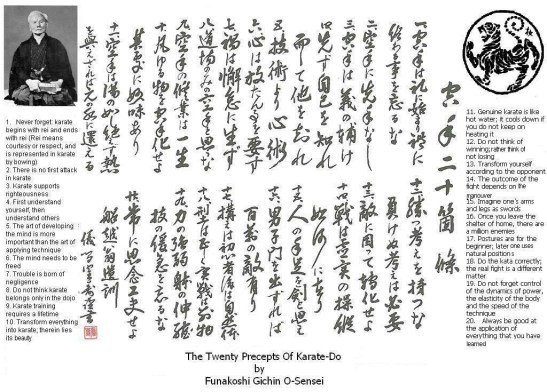 空手二十箇條
一 空手は礼に初まり礼に
終わる事を忘るな
二 空手に先手なし
三 空手は義の補け
四 先づ自己を知れ
而して他を知れ
五 技術より心術
六 心は放たん事を要す
七 禍は懈怠に生ず
八 道場のみの空手と思ふな
九 空手の修業は一生
十 凡ゆる物を空手化せよ
其処に妙味あり
十一 空手は湯の如し絶えず熱
を与えざれば元の水に還る
十二 勝つ考えは持つな
負けぬ考えは必要
十三 敵に因って轉化せよ
十四 戦は虚実の操縦
如何に在り
十五 人の手足を剣と思え
十六 男子門を出づれば
百万の敵有り
十七 構は初心者に後は自然体
十八 型は正しく実戦は別物
十九 力の強弱躰の伸縮
技の緩急を忘るな
常に思念工夫せよ
船越義珍遺訓
1. Never forget: karate
begins with rei and ends
with rei (Rei means
courtesy or respect, and
is represented in karate
by bowing)
2. There is no first attack
in karate
3. Karate supports
righteousness
4. First understand
yourself, then
understand others
5. The art of developing
the mind is more
important than the art of
applying technique
6. The mind needs to be
freed
7. Trouble is born of
negligence
8. Do not think karate
belongs only in the dojo
9. Karate training
requires a lifetime
10. Transform everything
into karate; therein lies
its beauty
11. Genuine karate is like
hot water; it cools down if
you do not keep on
heating it
12. Do not think of
winning; rather think of
not losing
13. Transform yourself
according to the opponent
14. The outcome of the
fight depends on the
manouver
15. Imagine one's arms
and legs as swords
16. Once you leave the
shelter of home, there are
a million enemies
17. Postures are for the
beginner; later one uses
natural positions
18. Do the kata correctly;
the real fight is a different
matter
19. Do not forget control
of the dynamics of power,
the elasticity of the body
and the speed of the
technique
20. Always be good at
the application of
everything that you have
learned
The Twenty Precepts Of Karate-Do
by
Funakoshi Gichin O-Sensei